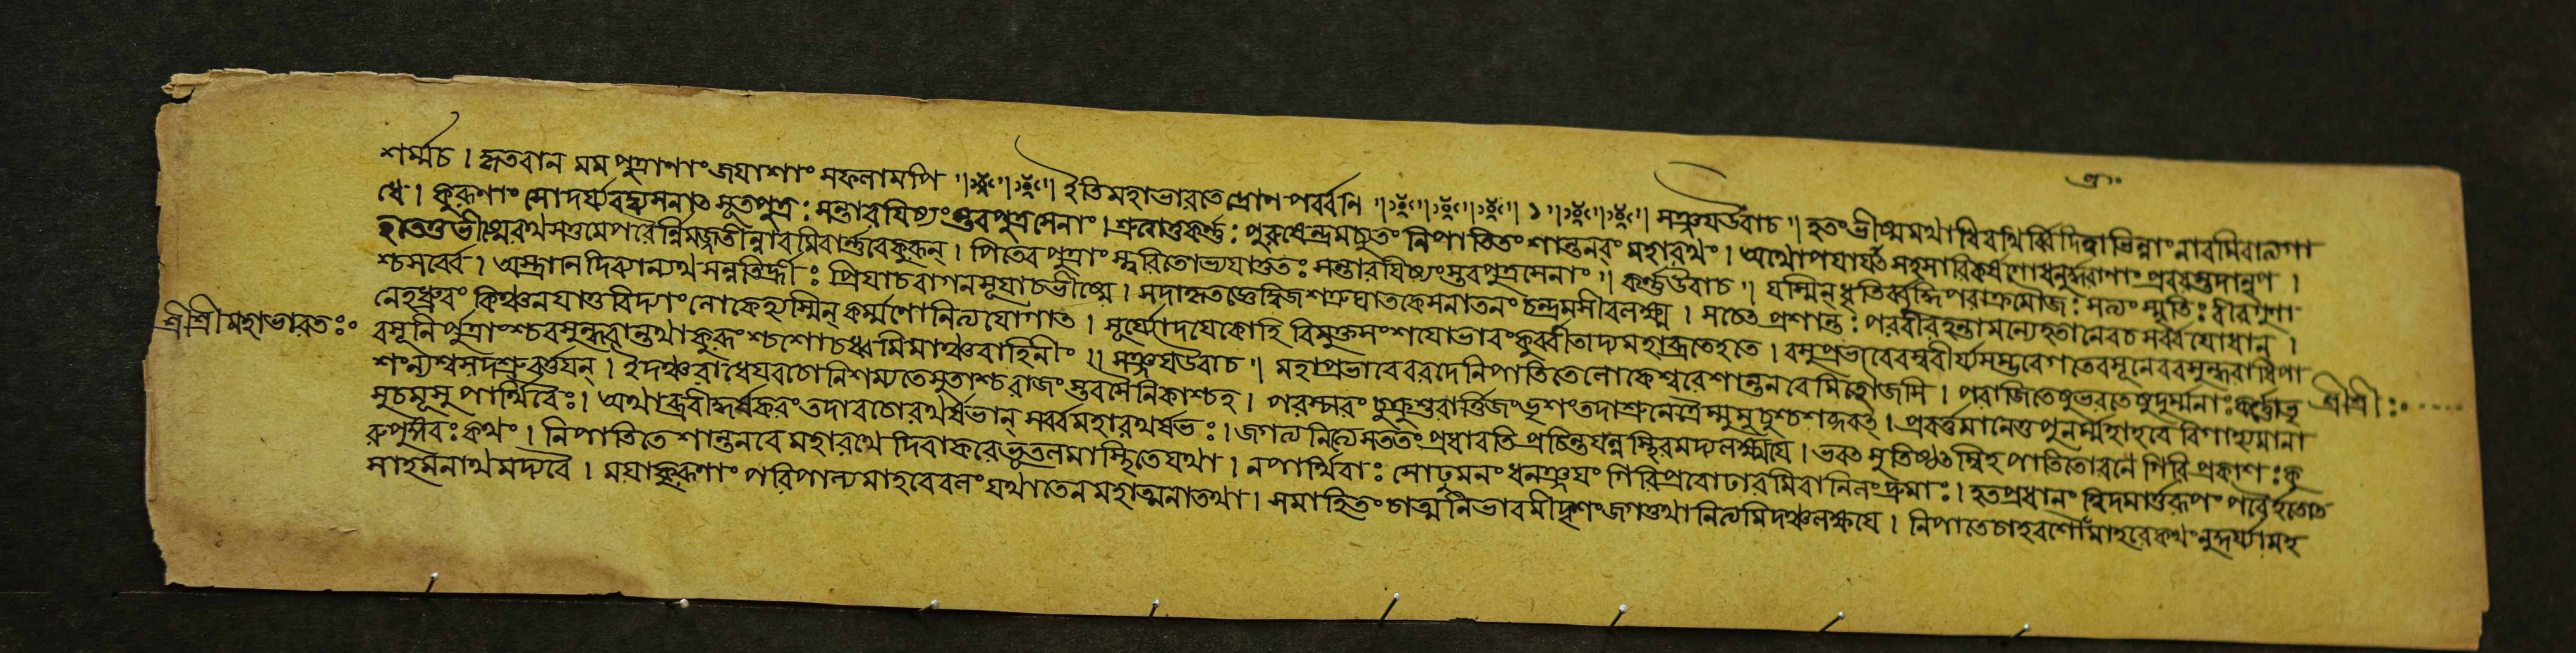 শর্ম্মচ। হৃতবান মম পুত্রাণাং জয়াশাং সফলামপি ॥ ইতি মহাভারতে দ্রোণ পর্ব্বনি ॥ ১ ॥ সঞ্জয়উবাচ ॥ হতং ভীষ্মমথাধিরথির্ব্বিদিত্বাভিন্নাং নাবমিবাত্যগা
ধে। কুরূণাং সোদর্য্যবদ্ব্যসনাৎ সূতপুত্র: সন্তারয়িষ্যংস্তবপুত্রসেনাং। শ্রুত্বাতুকর্ণ্ণ: পুরুষেন্দ্রমচ্যুতং নিপাতিতং শান্তনবং মহারথং। অথোপযাযৎ সহসারিকর্ষণোধনুর্দ্ধরাণাং প্রবরস্তুদানৃপ।
হতেতুভীষ্মেরথসত্তমেপরৈর্ন্নিমজ্জতীন্নাবমিবার্ণ্ণবেকুরূন্। পিতেবপুত্রাং স্ত্বরিতোভ্যযাত্ততঃ সন্তারয়িষ্যংস্তবপুত্রসেনাং ॥ কর্ণ্ণউবাচ ॥ যস্মিন্ধৃতির্ব্বুদ্ধিপরাক্রমৌজ: সত্যং স্মৃতি: বীরগুণা
শ্চসর্ব্বে। অস্ত্রানিদিব্যান্যথসন্নতির্হ্রী: প্রিয়াচবাগনসূয়াচভীষ্মে। সদাকৃতজ্ঞেদ্বিজশত্রুঘাতকেসনাতনং চন্দ্রমসীবলক্ষ্ম। সচেৎ প্রশান্ত: পরবীরহন্তামন্যেহতানেবচসর্ব্বযোধান্।
নেহধ্রুবং কিঞ্চনযাতুবিদ্যতং লোকেহ্যস্মিন্ কর্ম্মণোনিত্যযোগাৎ। সূর্য্যোদয়েকোহি বিমুক্তসংশয়োভাবংকুর্ব্বীতাদ্যমহাব্রতেহতে। বসুপ্রভাবেবসুবীর্য্যসম্ভবেগতেবসূনেববসুন্ধরাধিপা
শ্রীশ্রীমহাভারতঃ
বসূনি পুত্রাংশ্চবসুন্ধরান্তথা কুরূংশ্চশোচধ্বমিমাঞ্চবাহিনীং ॥ সঞ্জয়উবাচ ॥ মহাপ্রভাবেবরদেনিপাতিতেলোকেশ্বরেশান্তনবেমিতৌজসি। পরাজিতেষুভরতেষুদুর্ম্মনাঃকর্ণ্ণোভৃ
শ্রীশ্রীঃ
শংন্যশ্বসদশ্রুবর্ত্তয়ন্। ইদঞ্চরাধেয়বচোনিশম্যতেসুতাশ্চরাজং স্তবসৈনিকাশ্চহ। পরস্পরং চুক্রুশুরার্ত্তিজংভৃশংতদাশ্রুনেত্রৈর্ম্মুমুচুশ্চশব্দবৎ। প্রবর্ত্তমানেতুপুনর্ম্মহাহবে বিগাহ্যমানা
সুচমূসু পার্থিবৈঃ। অথাব্রবীদ্ধর্ষকরংতদাবচোরথর্ষভান্ সর্ব্বমহারথর্ষভঃ। জগত্যনিত্যেসততং প্রধাবতি প্রচিন্তয়ন্নস্থিরমদ্যলক্ষয়ে। ভবৎ সুতিষ্ঠৎস্বিহ পাতিতোরণে গিরি প্রকাশ:কু
রুপুঙ্গবঃকথং। নিপাতিতে শান্তনবে মহারথে দিবাকরেভূতলমাস্থিতেযথা। নপার্থিবাঃ সোঢ়ুমলং ধনঞ্জয়ং গিরিপ্রবোঢারমিবানিলংদ্রুমাঃ। হতপ্রধানং ত্বিদমার্ত্তরূপং পরৈর্হতোৎ
সাহমনাথমদ্যবৈ। ময়াকুরূণাং পরিপাল্যমাহবেবলং যথাতেনমহাত্মনাতথা। সমাহিতং চাত্মনিভাবমীদৃশংজগত্তথানিত্যমিদঞ্চলক্ষয়ে। নিপাতেচাহবশৌ